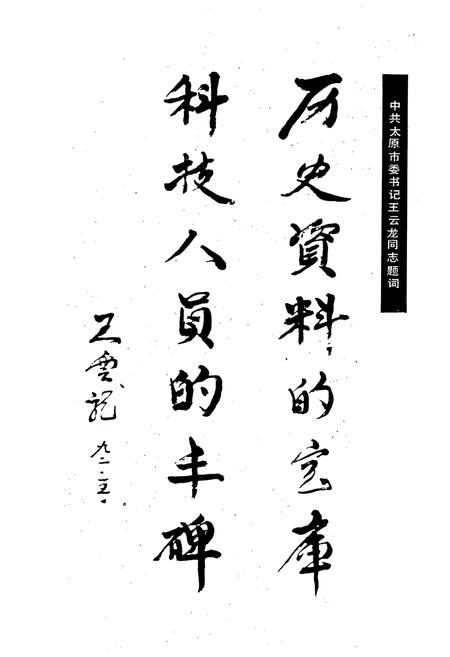 中共太原市委书记王云龙同志题词
历史資料的宝庫
科技人员的丰碑
王雲龍
九二·五·